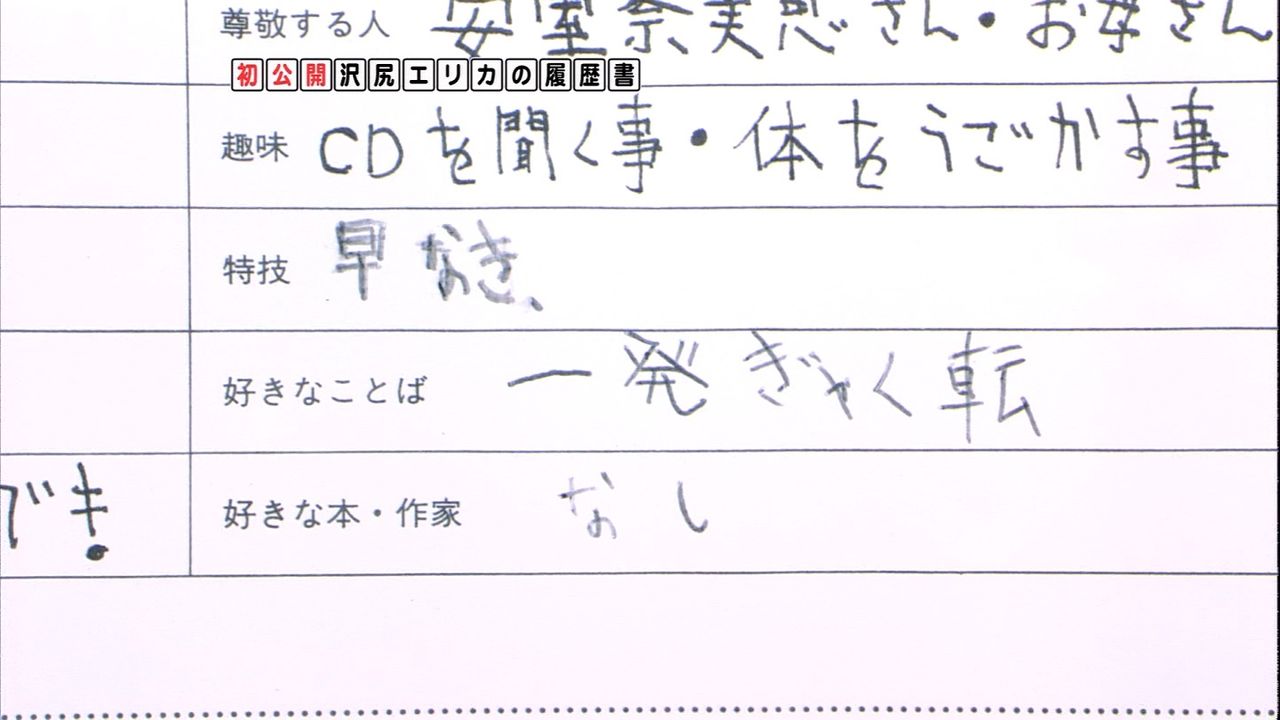 尊敬する人 安室奈美恵さん・お母さん
初公開沢尻エリカの履歴書
趣味 CDを聞く事・体をうごかす事
特技 早なき、
好きなことば 一発ぎゃく転
でき
好きな本・作家 なし